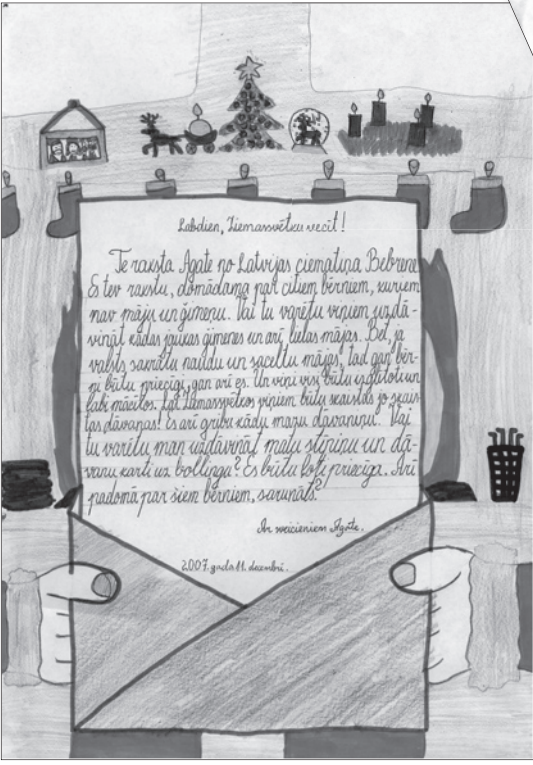 Labdien, Ziemassvētku vecīt!
Te raksta Agate no Latvijas ciematiņa Bebrene.
Es tev rakstu, domādama par citiem bērniem, kuriem
nav māju un ģimeņu. Vai tu varētu viņiem uzdā-
vināt kādas jaukas ģimenes un arī lielas mājas. Bet, ja
valsts sakrātu naudu un saceltu mājas, tad gan bēr-
ni būtu priecīgi, gan arī es. Un viņi visi būtu izglītoti un
labi mācītos. Lai Ziemassvētkos viņiem būtu skaistas jo skais-
tas dāvanas! Es arī gribu kādu mazu dāvaniņu. Vai
tu varētu man uzdāvināt matu stīpiņu un dā-
vanu karti uz bollingu? Es būtu ļoti priecīga. Arī
padomā par šiem bērniem, sarunāts?
Ar sveicieniem Agate.
2007. gada 11. decembrī.